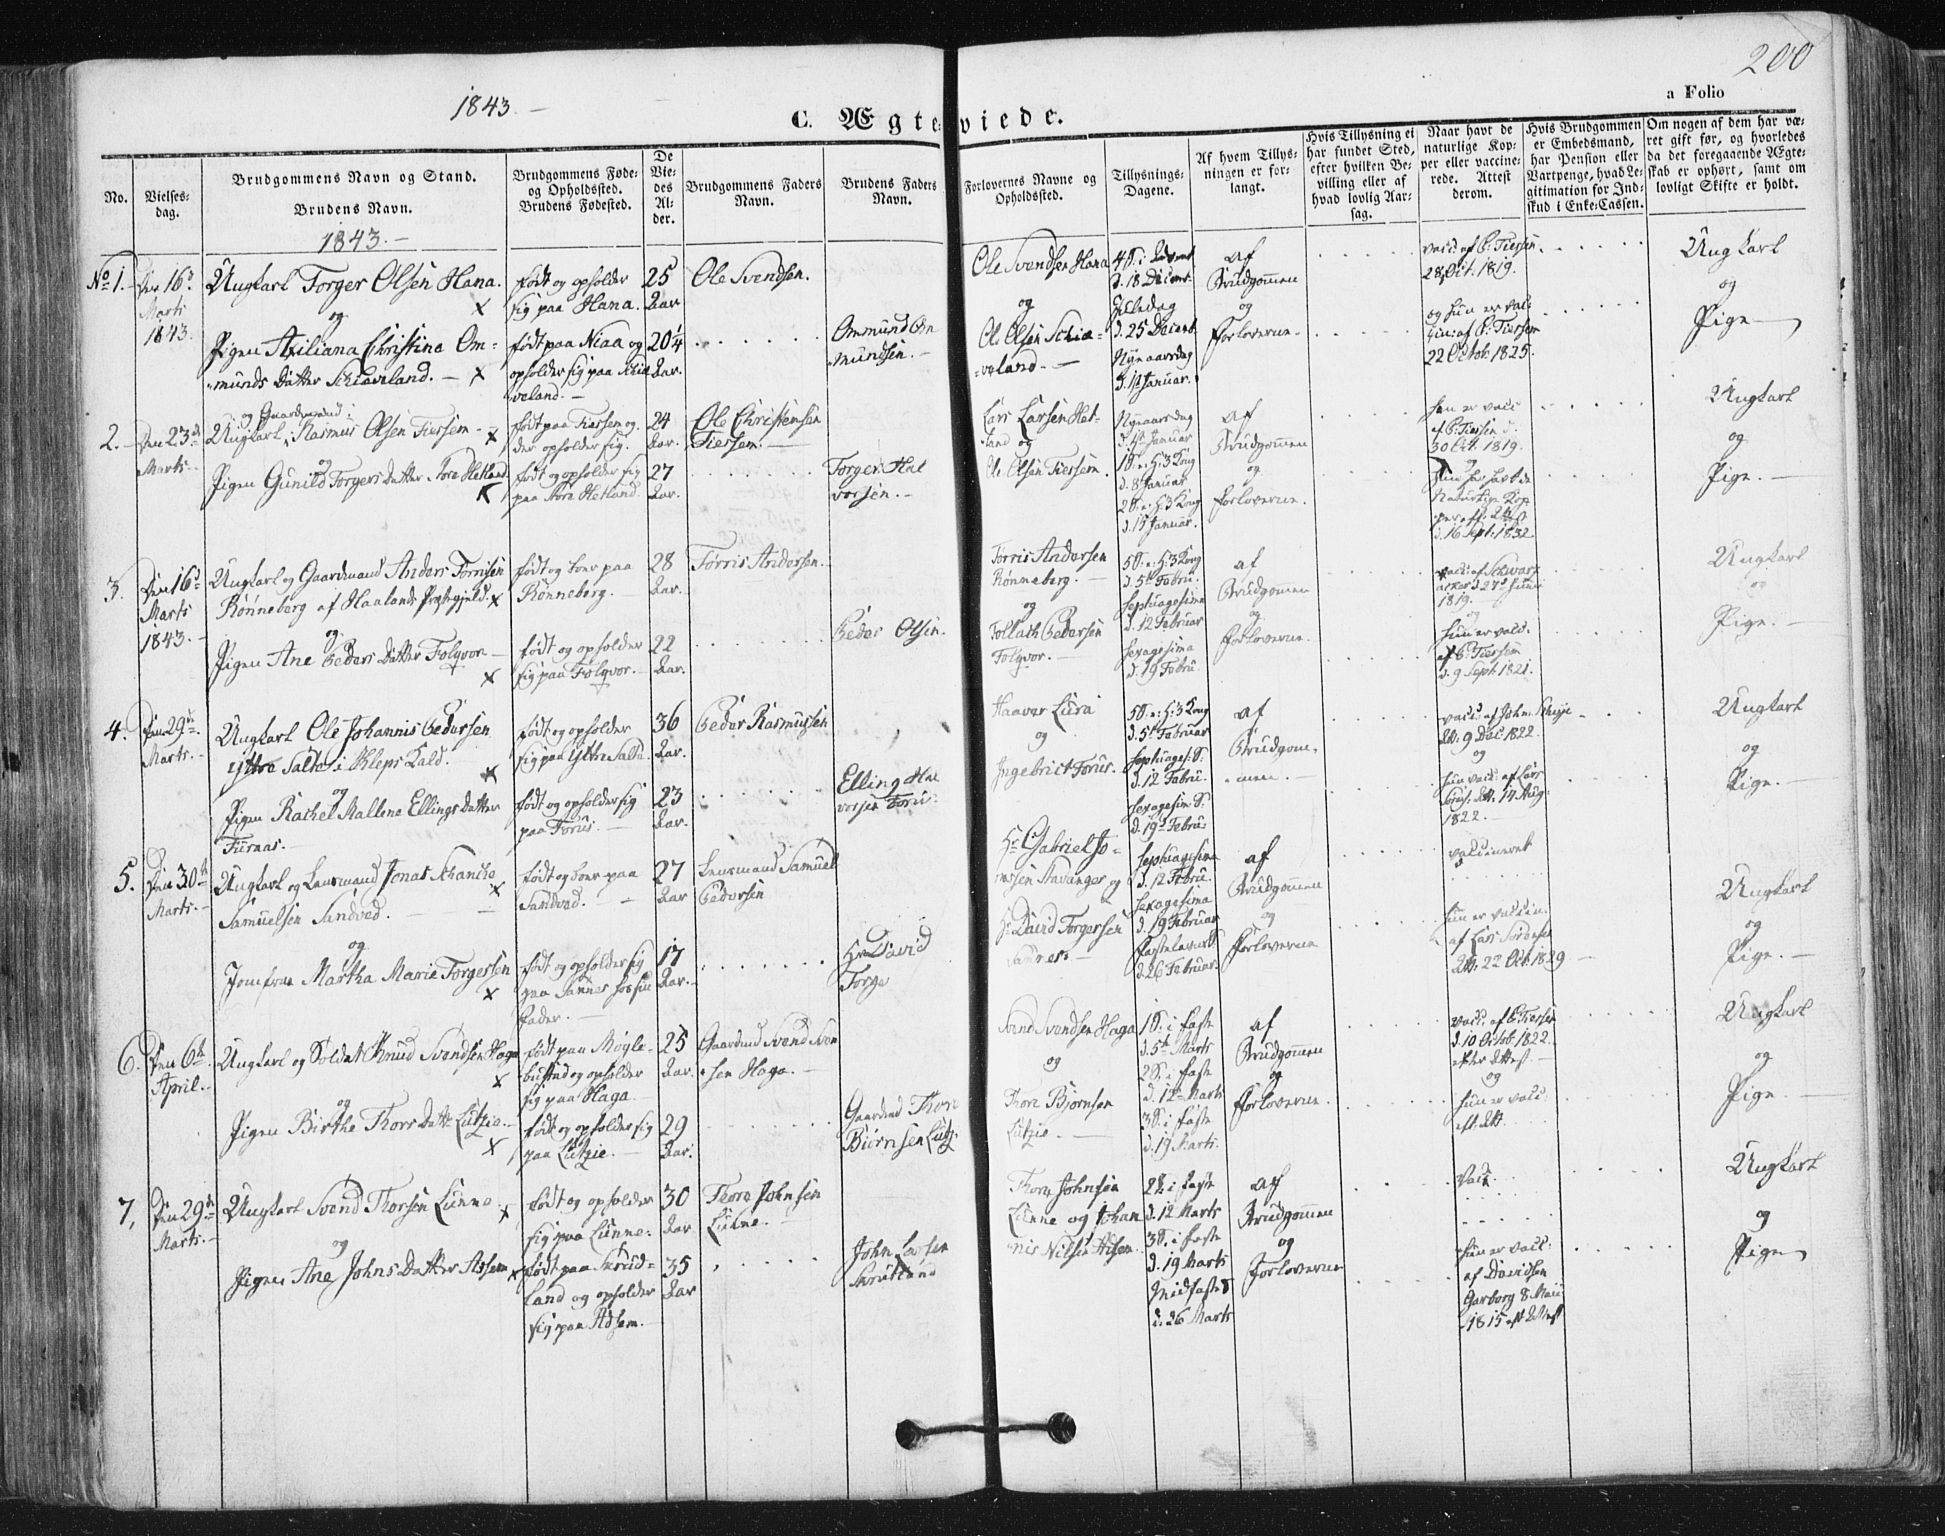 200
1843.-
a Folio
C. Ægteviede.
No.
Vielses-
dag.
Brudgommens Navn og Stand.
Brudens Navn.
Brudgommens Føde-
og Opholdssted.
Brudens Fødested.
De
Vie-
des
Al-
der.
Brudgommens Faders
Navn.
Brudens Faders
Navn.
Forlovernes Navne og
Opholdssted.
Tillysnings-
Dagene.
Af hvem Tillys-
ningen er for-
langt.
Hvis Tillysning ei
har fundet Sted,
efter hvilken Be-
villing eller af
hvad lovlig Aar-
sag.
Naar havt de
naturlige Kop-
per eller vaccine-
rede. Attest
derom.
Hvis Brudgommen
er Embedsmand,
har Pension eller
Vartpenge, hvad Le-
gitimation for Ind-
skud i Enke-Cassen.
Om nogen af dem har væ-
ret gift før, og hvorledes
da det foregaaende Ægte-
skab er ophørt, samt om
lovligt Skifte er holdt.
1843.-
No 1.
Den 16d
Marts
1843.
Ungkarl Torger Olsen Hana.
og
Pigen Axiliana Christina Om-
munds Datter Schiaveland.
født og opholder
sig paa Hana.
født paa Niaa og
opholder sig paa Schia
veland.
25
Aar.
20 1/4
Aar.
Ole Svendsen.
Ommund Om
mundsen.
Ole Svendsen Hana
og
Ole Olsen Schia-
veland.
4 S. i Advent
d. 18 Decemr.
Juledag
d. 25 Decemb.
Nyeaarsdag
d. 1st Januar.
af
Brudgommen
og
Forloverne.
vacc. af P. Tiersen
28 Oct. 1819.
og hun er vac-
cin: af P. Tiersen
22 Octob: 1825.
Ungkarl
og
Pige
2.
Den 23d
Marts.
og Gaardmand
Ungkarl, Rasmus Olsen Tiersem
og
Pigen Gunild Torgers Datter Store Hetland.
født paa Tiersem og
der opholder sig.
født og opholder sig
paa Store Hetland.
24
Aar.
27
Aar.
Ole Christensen
Tiersem.
Torger Hal
vorsen.
Lars Larsen Het-
land og
Ole Olsen Tiersem.
Nyeaarsdag
d. 1st Januar
1 S. e. H: 3 Kong
d. 8 Januar
2 S. e. H: 3 Kong
d. 15 Januar.
af
Brudgommen
og
Forloverne.
han er vacc
af P. Tiersen d.
30 Oct. 1819.
og
hun har havt de
Naturlige Kop-
per
d. 16 Sept. 1832
Ungkarl
og
Pige.
3.
Den 16d
Marts
1843.
Ungkarl og Gaardmand Anders Torrisen
Rønneberg af Haalands Præstegjeld.
og
Pigen Ane Peders Datter Folqvor
født og boer paa
Rønneberg.
født og opholder
sig paa Folqvor.
28
Aar.
22
Aar.
Torris Andersen.
Peder Olsen.
Torris Andersen
Rønneberg.
og
Tollach Pedersen
Folqvor.
5 S. e. H: 3 Kong
d. 5te Febru.
Septuagesima
d. 12 Februar
Sexagesima
d. 19 Febru.
af
Brudgommen
og
Forloverne.
vacc: af Schwarz
1819.
og
hun er vacc.
af P. Tiersem
d. 9 Sept. 1821.
Ungkarl
og
Pige.
4.
Den 29de
Marts.
Ungkarl Ole Johannis Pedersen
Yttre Salte i Kleps Kald.
og
Pigen Rachel Mallene Ellings Datter
Furnas.
født og opholder
sig paa Yttre Salte.
født og opholder sig
paa Forus.
36
Aar.
23
Aar.
Peder Rasmussen
Elling Hal
vorsen Forus
Haaver Lura
og
Ingebrict Forus.
5 S. e: H: 3 Kong
d. 5te Februar
Septuages: S:
d. 12 Febru.
Sexagesim S.
d. 19de Febru:
af
Brudgom-
men.
vacc: af John
Att: 9 Dec. 1822
og
hun vacc: af Lars
Att. 14 Aug:
1822.
Ungkarl
og
Pige.
5.
Den 30te
Marts.
Ungkarl og Lensmand Jonas Schancke
Samuelsen Sandved.
og
Jomfrue Martha Marie Torgersen
født og boer paa
Sandved.
født og opholder sig
paa Sannes hos sin
Fader.
27
Aar
17
Aar.
Lensmand Samuel
Pedersen
Hr David
Torge
Hr Gabriel Jo-
nassen Stavanger og
Hr David Torgersen
Sannes.
Septuagesima
d. 12 Febru.
Sexagesima
d. 19 Februar
Fastelavns S
d. 26 Februar.
af
Brudgommen
og
Forloverne
vaccineret
hun er vaccin.
af Lars
Att. 22 Oct. 1829
Ungkarl
og
Pige.
6.
Den 6te
April.
Ungkarl og Soldat Knud Svendsen Haga
og
Pigen Birthe Thors Datt. Lutzie.
født paa Mogle-
bustad og opholder
sig paa Haga.
født og opholder sig
paa Lutzie.
25
Aar.
29
Aar.
Gaardmd Svend Sven
sen Haga.
Gaardmd Thore
Biørnsen Lutz.
Svend Svendsen Haga
og
Thore Bjørnsen
Lutzie.
1 S. i Faste
d. 5te Marts
2 S. i Faste
d. 12te Marts
3 S. i Faste
d. 19 Marts.
af
Brudgommen
og
Forloverne.
vacc: af P. Tiersen
d. 10 Octob 1822.
efter Attest.
og
hun er vacc
eft. Att.
Ungkarl
og
Pige
7,
Den 29de
Marts.
Ungkarl Svend Thorsen Lunne.
og
Pigen Ane Johns Datter Adsem
født og opholder
sig paa Lunne.
født paa Skrud-
land og opholder
sig paa Adsem.
30
Aar
35
Aar
Thore Johnsen
Lunne.
John Larsen
Skrudland
Thore Johnsen
Lunne og Johan
nis Nilsen
2 S. i Faste
d. 12 Marts
3 S. i Faste
d. 19 Marts
Midfaste S
d. 26 Marts
af
Brudgommen
og
Forloverne
Vacc.
hun er vacc:
af Davidsen
Garborg 8 Maii
1815 eft Attest
Ungkarl
og
Pige